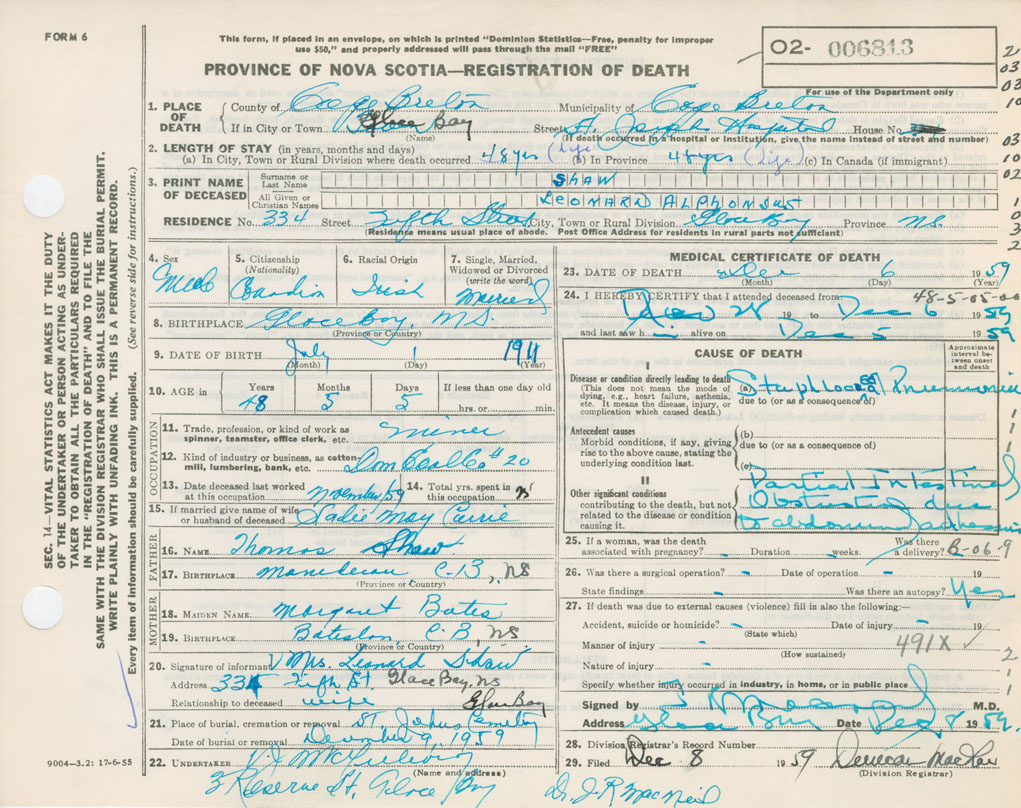 FORM 6
This form, if placed in an envelope, on which is printed "Dominion Statistics—Free, penalty for improper
use $50," and properly addressed will pass through the mail "FREE"
O2- 006813
For use of the Department only
PROVINCE OF NOVA SCOTIA—REGISTRATION OF DEATH
1. PLACE OF DEATH
County of Cape Breton Municipality of Cape Breton
If in City or Town Glace Bay Street St. Joseph Hospital House No.
(Name) (If death occurred in a hospital or institution, give the name instead of street and number)
2. LENGTH OF STAY (in years, months and days)
(a) In City, Town or Rural Division where death occurred 48 yrs (life) (b) In Province 48 yrs (life) (c) In Canada (if immigrant)
3. PRINT NAME OF DECEASED
Surname or Last Name SHAW
All Given or Christian Names LEONARD ALPHONSUS
RESIDENCE No. 334 Street Fifth Street City, Town or Rural Division Glace Bay Province N.S.
(Residence means usual place of abode. Post Office Address for residents in rural parts not sufficient)
4. Sex Male
5. Citizenship (Nationality) Canadian
6. Racial Origin Irish
7. Single, Married, Widowed or Divorced (write the word) Married
8. BIRTHPLACE Glace Bay, N.S.
(Province or Country)
9. DATE OF BIRTH July 1 1911
(Month) (Day) (Year)
10. AGE in Years 48 Months 5 Days 5 If less than one day old hrs. or min.
OCCUPATION
11. Trade, profession, or kind of work as spinner, teamster, office clerk, etc. Miner
12. Kind of industry or business, as cotton-mill, lumbering, bank, etc. Dom Coal Co # 20
13. Date deceased last worked at this occupation November/59
14. Total yrs. spent in this occupation
15. If married give name of wife or husband of deceased Sadie May Currie
FATHER
16. NAME Thomas Shaw
17. BIRTHPLACE C.B., NS
(Province or Country)
MOTHER
18. MAIDEN NAME Margaret Bates
19. BIRTHPLACE C.B., NS
(Province or Country)
20. Signature of informant Mrs. Leonard Shaw
Address 334 Fifth St. Glace Bay, NS
Relationship to deceased wife Glace Bay
21. Place of burial, cremation or removal St. Johns Cemetery
Date of burial or removal December 9, 1959
22. UNDERTAKER V.J. McGillivray
(Name and address)
Reserve St, Glace Bay
Dr. J.R. MacNeil
9004—3.2: 17-6-55
MEDICAL CERTIFICATE OF DEATH
23. DATE OF DEATH Dec 6 1959
(Month) (Day) (Year)
48-5-05-00
24. I HEREBY CERTIFY that I attended deceased from
Nov 28 1959 to Dec 6 1959
and last saw him alive on Dec 5 1959
CAUSE OF DEATH
Approximate interval between onset and death
I
Disease or condition directly leading to death
(This does not mean the mode of dying, e.g., heart failure, asthenia, etc. It means the disease, injury, or complication which caused death.)
(a) Staphlococcal Pneumonia
due to (or as a consequence of)
Antecedent causes
Morbid conditions, if any, giving rise to the above cause, stating the underlying condition last.
(b)
due to (or as a consequence of)
(c)
II
Other significant conditions contributing to the death, but not related to the disease or condition causing it.
Partial intestinal
Obstruction due
to abdominal adhesions
25. If a woman, was the death associated with pregnancy? - Duration weeks. Was there a delivery? B-06-9
26. Was there a surgical operation? - Date of operation - 19
State findings - Was there an autopsy? Yes
27. If death was due to external causes (violence) fill in also the following:—
Accident, suicide or homicide? - Date of injury - 19
(State which)
Manner of injury - 491X
(How sustained)
Nature of injury -
Specify whether injury occurred in industry, in home, or in public place
Signed by M.D.
Address Glace Bay Date Dec 8 1959.
28. Division Registrar's Record Number
29. Filed Dec 8 1959 Duncan MacRae
(Division Registrar)
SEC. 14—VITAL STATISTICS ACT MAKES IT THE DUTY
OF THE UNDERTAKER OR PERSON ACTING AS UNDER-
TAKER TO OBTAIN ALL THE PARTICULARS REQUIRED
IN THE "REGISTRATION OF DEATH" AND TO FILE THE
SAME WITH THE DIVISION REGISTRAR WHO SHALL ISSUE THE BURIAL PERMIT.
WRITE PLAINLY WITH UNFADING INK. THIS IS A PERMANENT RECORD.
Every item of information should be carefully supplied. (See reverse side for instructions.)
2
03
03
10
03
10
02
1
0
3
2
1
1
1
1
2
1
1